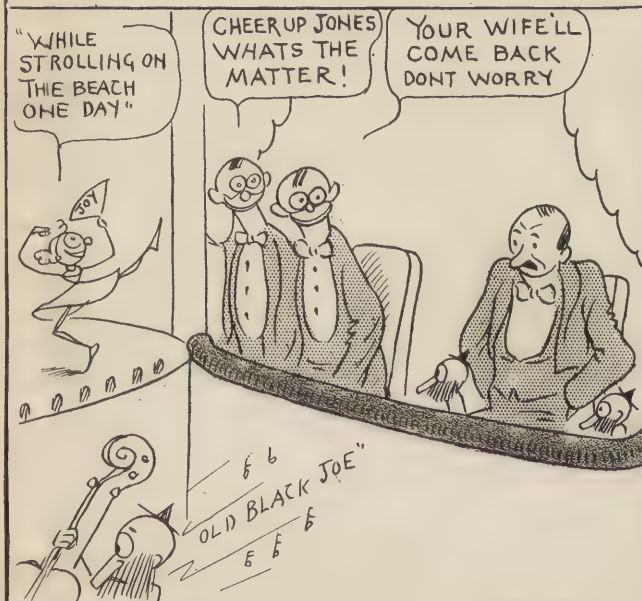 "WHILE
STROLLING ON
THE BEACH
ONE DAY"
CHEER UP JONES
WHATS THE
MATTER!
YOUR WIFE'LL
COME BACK
DONT WORRY
JOY
OLD BLACK JOE"